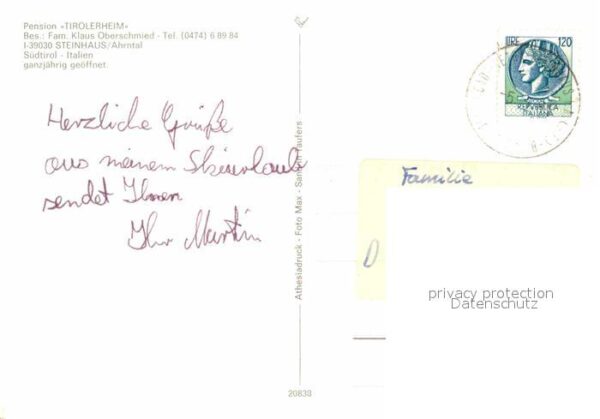 Pension «TIROLERHEIM»
Bes.: Fam. Klaus Oberschmied - Tel. (0474) 6 89 84
I-39030 STEINHAUS/Ahrntal
Südtirol - Italien
ganzjährig geöffnet
Herzliche Grüße
aus meinem Skiurlaub
sendet Ihnen
Ihr Martin
Athesiadruck - Foto Max - Sand in Taufers
20838
LIRE 120
ITALIANA
Familie
D
privacy protection
Datenschutz